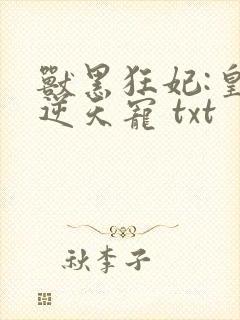 獸黑狂妃:皇
逆天寵 txt
秋李子